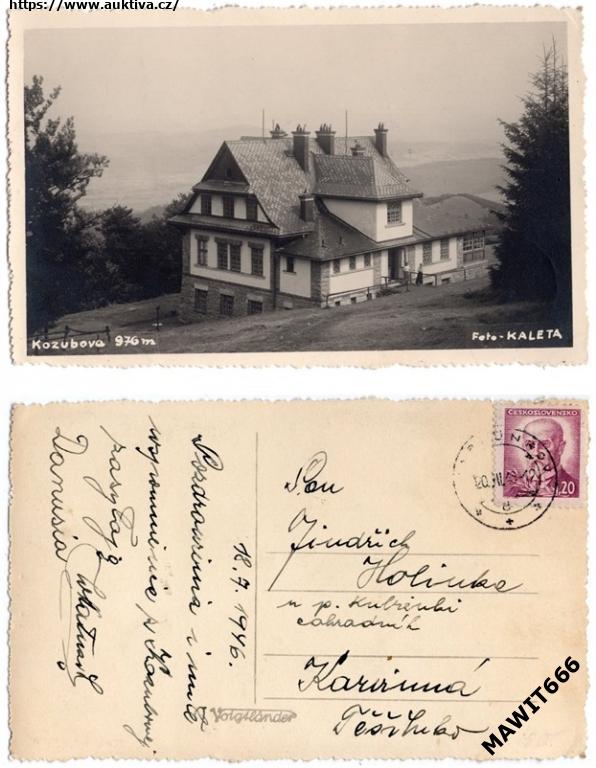 https://www.auktiva.cz/
Kozubova 976m
Foto-KALETA
18.7.1946.
Pozdrowienia i miłe
wspomnienie z Kozubowej
zasyłają
Danusia
Voigtländer
ČESKOSLOVENSKO
1.20
Pan
Jindřich
Holinka
u p.
zahradník
Karvinná
Těšínsko
MAWIT666